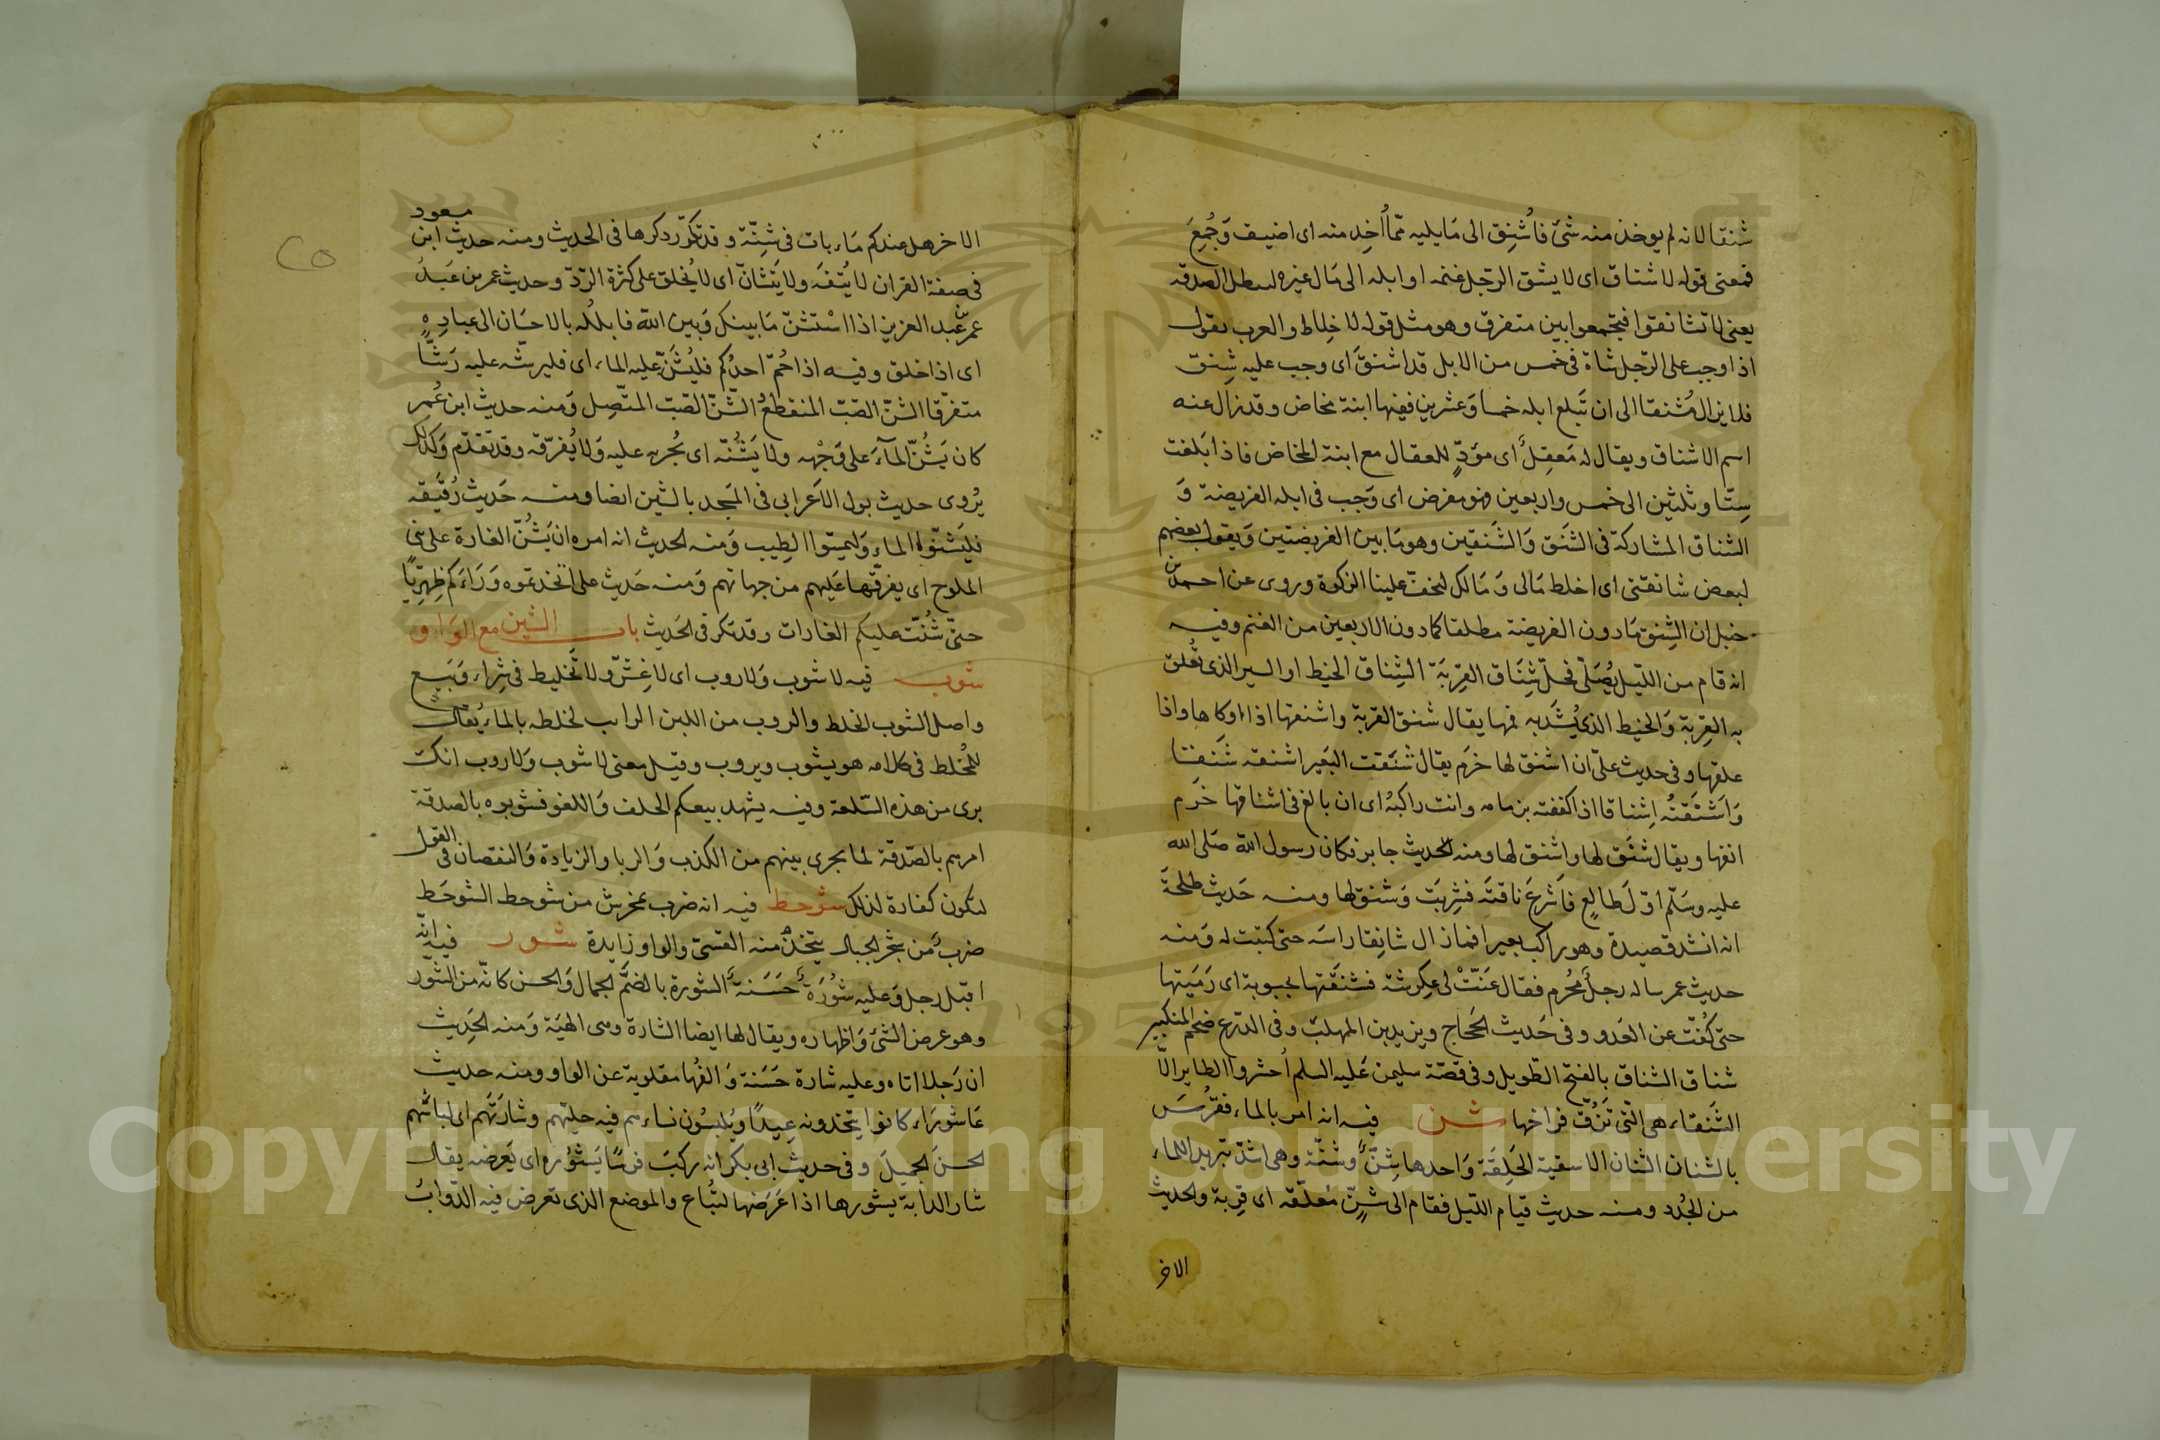 شَنقا لانه لم يوخذ منه شئ فاُشنِق الى مَا يليه ممّا اُخِذ منه اى اضيف وَجُمِعَ
فمعنى قوله لا شناق اى لا يشنق الرّجل غنمه او ابله الى مَال غيره ليبطل الصدقه
يعنى لا تشانقوا فتجمعوا بين متفرق وهو مثل قوله لا خِلاط والعرب يقول
اذا وجب على الرّجل شاة فى خمس من الابل قد اشنقَ اى وجب عليه شِنقٌ
فلا يزال مُشنقا الى ان تَبلغ ابله خمسا وَعشرين ففيها ابنة مخاض وقد زال عنه
اسم الاشناق ويقال له مَعقِلٌ اى موَدٍّ للعقال مع ابنة المخاض فاذا بَلغت
سِتّا وثلثين الى خمس واربعين فهو مفرض اى وَجب فى ابله الفريضة وَ
الشناق المشاركة فى الشنَق وَالشَنقين وهو مَا بين الفريضتين وَيقول بعضهم
لبعض شانقنى اى اخلط مَالى وَ مَالك لتخفّ علينا الزكوة وروى عن احمد بن
حنبل ان الشِنق مَا دون الفريضة مطلقا كما دون الاربعين من الغنم وفيه
انه قام من اللّيل يُصَلّى فحَلّ شِنَاق القِربَة الشِناق الخيط او السير الذى تُعلق
به القِربة وَالخيط الذى يُشدّ به فمها يقال شنق القربة واشنقها اذا اوكاها واذا
علقها وفى حديث علىّ ان اشنق لها خرَم يقال شنَقت البَعير اشنقه شَنقا
وَاَشنَقتُه اِشناقا اذا كففته بزمامه وانت راكبهُ اى ان بالغ فى اشناقها خَرم
انفها ويقال شنَق لها واشنق لها ومنه الحديث جابر فكان رسول الله صَلى الله
عليه وسَلّم اوّلَ طالعٍ فاَشرعَ ناقتَه فشِربَت وَشنق لها ومنه حَديث طلحةَ
انه انشد قصيدة وهو راكب بعيرا فما زال شانِقا راسَه حتى كتبت له وَمنه
حديث عمر ساله رجلٌ مُحرم فقال عَنّتْ لى عِكرشة فشنَقتها بجبوبة اى رَمَيتها
حتى كُفّت عن العَدو وفى حَديث الحَجاج ويزيد بن المهلبّ وفى الدّرع ضخم المنكبين
شناق الشناق بالفتح الطّويل وفى قصّة سليمن عَليه السلم اُحشروا الطاير الّا
الشَنقاء هى الّتى تَزُقّ فراخها شنن فيه انه امر بالماء فقُرّسَ
بالشنان الشنان الاسقية الخَلِقَة وَاحدها شنّ وَشنّة وهى اشدّ تبريدا للماء
من الجُدد ومنه حديث قيام اللّيل فقام الى شنٍّ مُعلّقه اى قِربة والحديث
الاخر
الاخر هل عندكم مَاء بات فى شِنّة وقد تكرّر ذكرها فى الحديث ومنه حديث ابن
مسعود
فى صفة القران لا يُتفَه ولا يَتشانّ اى لا يُخلق على كثرة الرّدّ وحديث عمر بن عَبدِ
عمر بن عَبد العزيز اذا اسْتشنّ مَا بينك وَبين الله فابللْه بالاحسَان الى عبادِه
اى اذا خلق وفيه اذا حُمّ احدُكم فليُشنّ عليه الماء اى فليرشّه عليه رَشّا
متفرّقا الشنّ الصّبّ المنقطعُ السّنّ الصّبّ المتّصِل وَمنه حديث ابن عُمر
كان يَسُنّ المآءَ على وَجْهه ولا يَشُنّه اى يُجريه عليه وَلا يُفرّقه وقد تقدّم وَكذلك
يُروى حديث بول الاَعرابى فى المَسجد بالشين ايضا ومنه حَديث رُقَيقه
فليَشنّوا الماء وَليمسّوا الطِيب وَمنه الحديث انه امره ان يَشُنّ الغارة على بنى
الملوح اى يفرّقها عَليهم من جهاتهم وَمنه حَديث على اتخذتموه وَرَاءَكم ظِهرِيّا
حتىّ شُنّت عليكم الغارات وقد تكرر فى الحَديث باب الشين مع الوَاو
شوب فيه لا شوب وَلا روب اى لا غِشّ ولا تَخليط فى شِراء وَبَيع
واصل الشوب الخلط والروب من اللبن الرايب لخلطه بالماء يُقال
للمُخلط فى كلامه هو يشوب ويروب وقيل معنى لا شوب وَلا روب انك
برى من هذه السّلعة وفيه يشهد بيعكم الحلف وَاللغو فشوبوه بالصدقة
امرهم بالصّدقة لما يجرى بينهم من الكذب وَالربا والزيادة وَالنقصان فى القول
لتكون كفارة لذلك شوحط فيه انه ضرب بمخرش من شوحط الشوحَط
ضربٌ من شجر الجبال يتخذ منه القسىّ والواو زايدة شور فيه انّه
اقبَل رجل وَعليه شُورَةٌ حَسَنةٌ الشورة بالضمّ الجمال وَالحسن كانّه من الشَوْر
وهو عرض الشئ وَاظهاره ويقال لها ايضا الشارة وهى الهيَة وَمنه الحَديث
ان رَجلا اتاه وعليه شارة حَسَنة وَالفُها مقلوبة عن الواو ومنه حديث
عَاشورَاء كانوا يتخذونه عِيدًا ويُلبسُون نساءهم فيه حليّهم وشارَتَهم اى لباسَهم
الحسنَ الجميلَ وفى حديث ابى بكر انه ركبَ فرسًا يَشُوره اى يَعرضه يقال
شار الدابةَ يشورها اذا عَرَضها لتُباع والموضع الذى تعرض فيه الدّوابّ